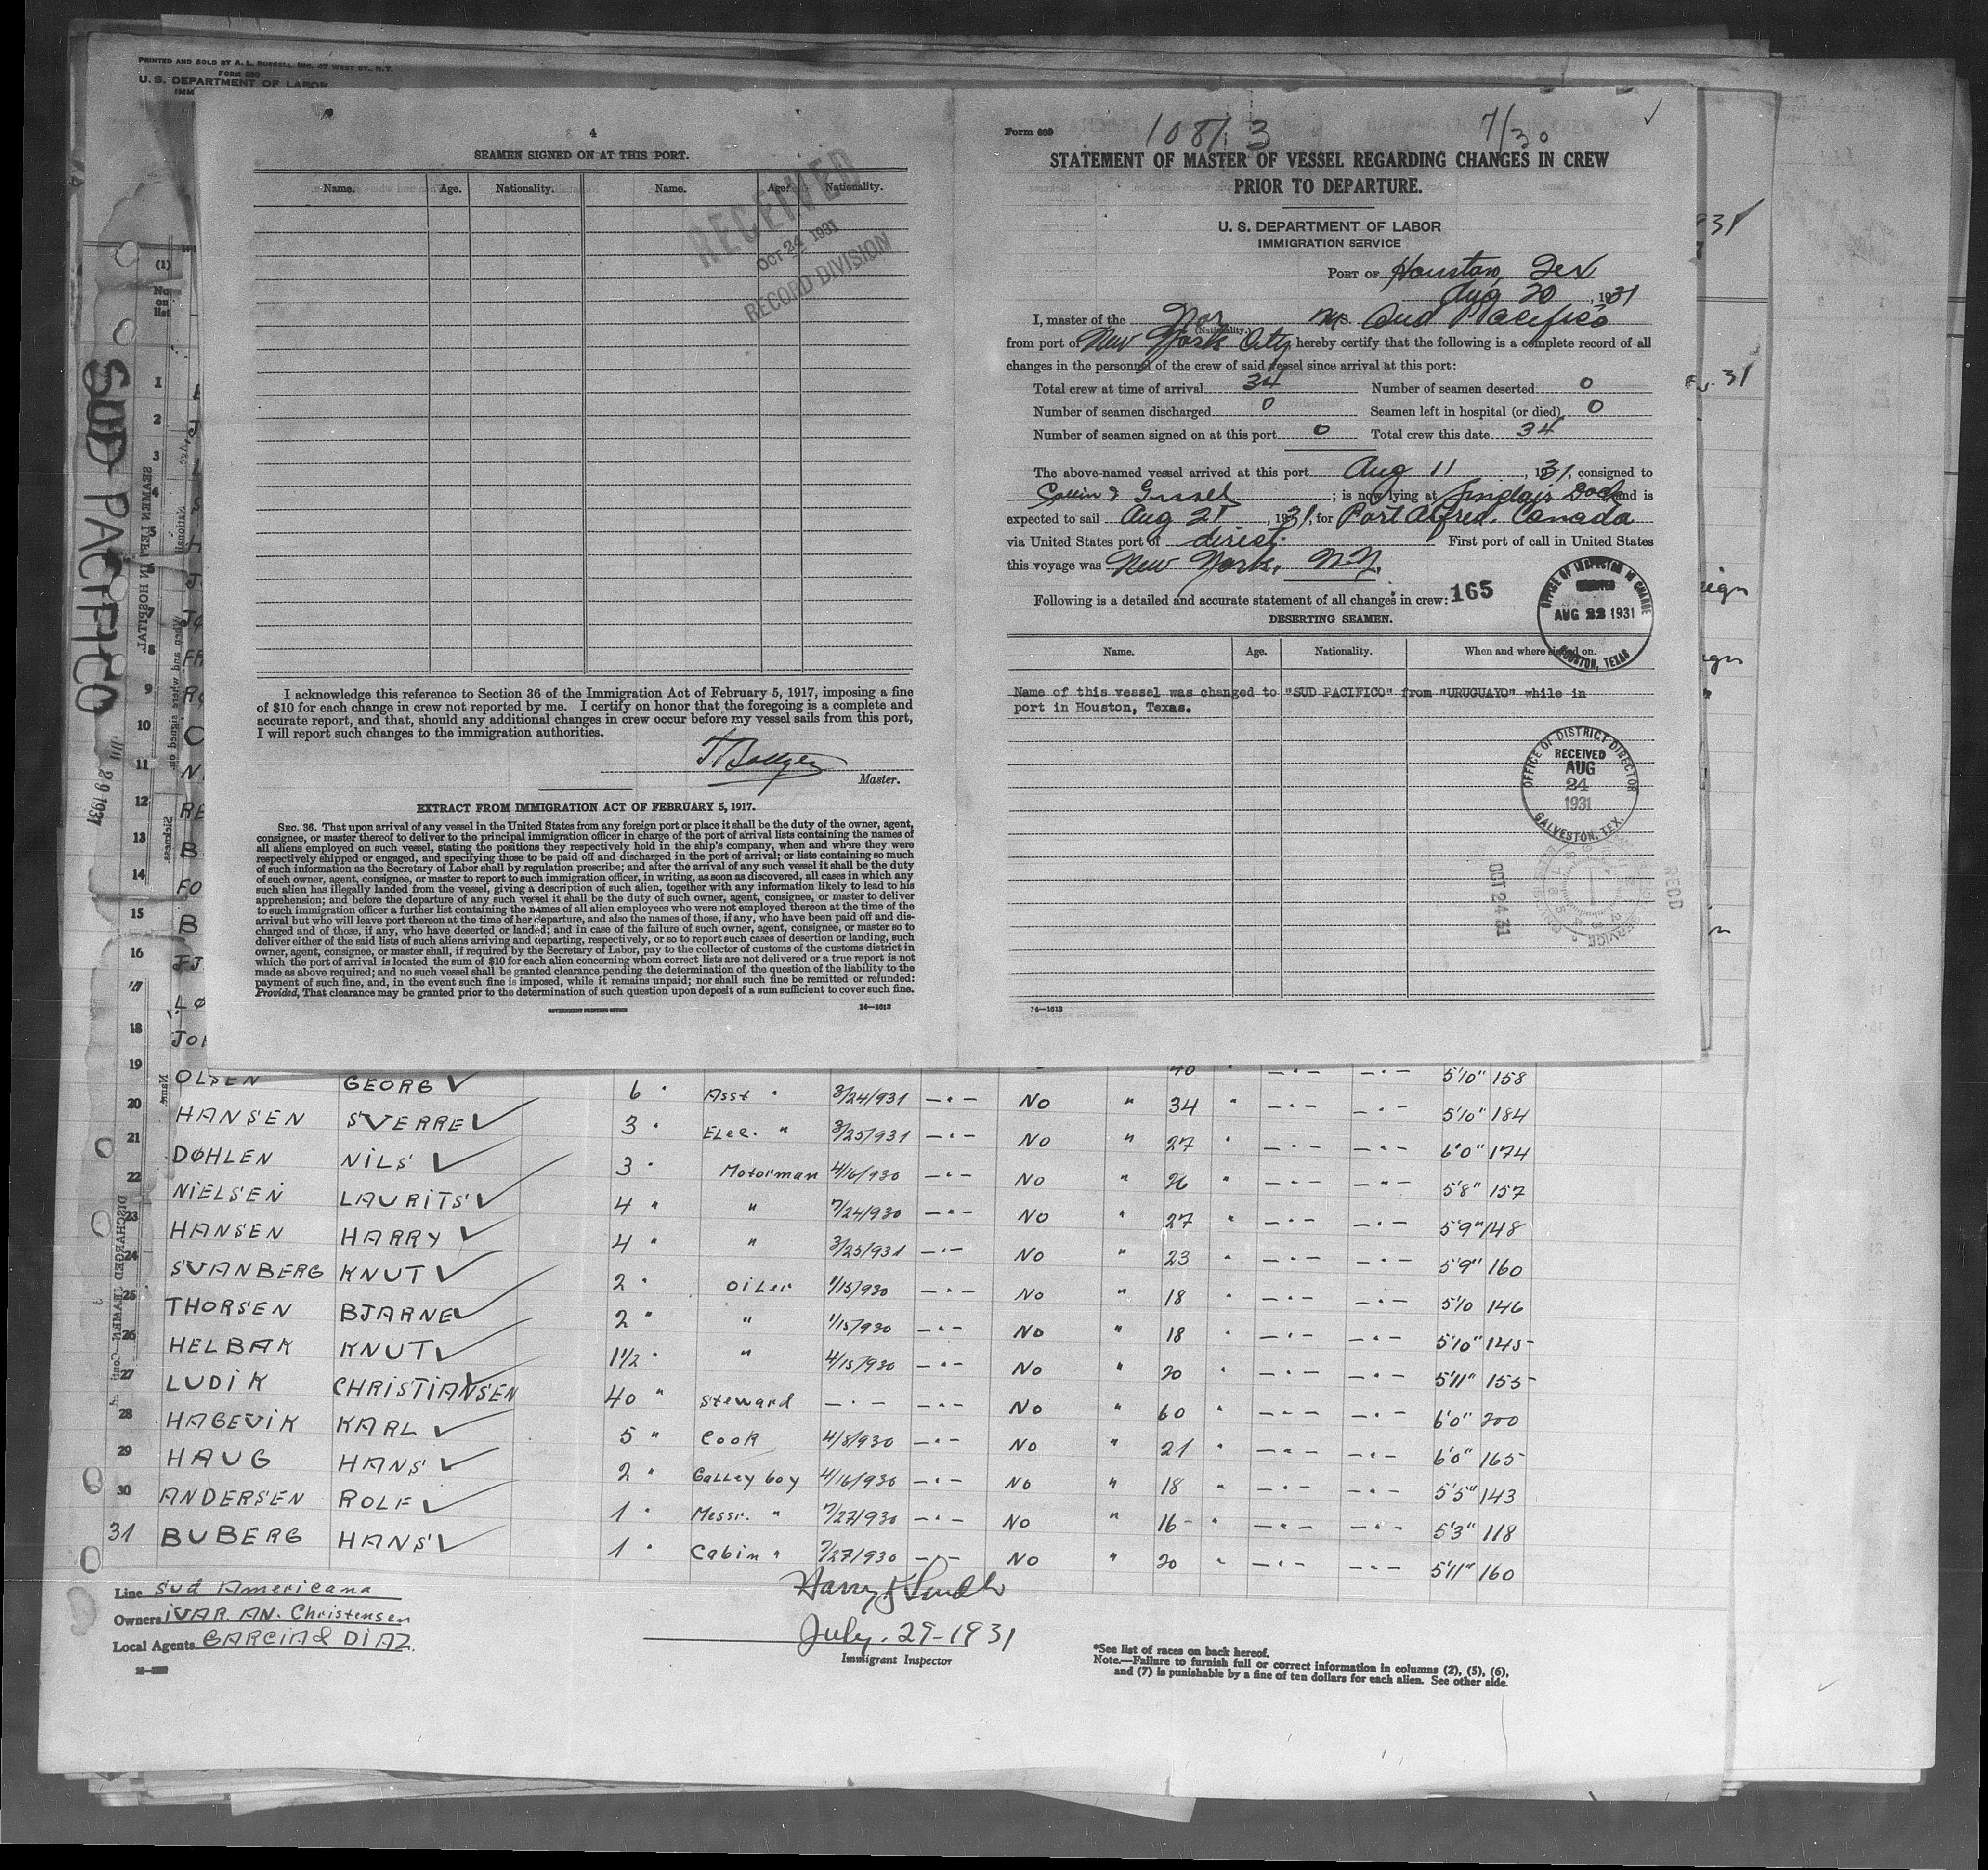 PRINTED AND SOLD BY A. L. RUSSELL, INC. 47 WEST ST., N.Y.
Form 680
U. S. DEPARTMENT OF LABOR
SUD-PACIFICO
JUL 29 1931
4
SEAMEN SIGNED ON AT THIS PORT.
Name. Age. Nationality. Name. Age. Nationality.
RECEIVED
OCT 24 1931
RECORD DIVISION
I acknowledge this reference to Section 36 of the Immigration Act of February 5, 1917, imposing a fine
of $10 for each change in crew not reported by me. I certify on honor that the foregoing is a complete and
accurate report, and that, should any additional changes in crew occur before my vessel sails from this port,
I will report such changes to the immigration authorities.
Master.
EXTRACT FROM IMMIGRATION ACT OF FEBRUARY 5, 1917.
SEC. 36. That upon arrival of any vessel in the United States from any foreign port or place it shall be the duty of the owner, agent,
consignee, or master thereof to deliver to the principal immigration officer in charge of the port of arrival lists containing the names of
all aliens employed on such vessel, stating the positions they respectively hold in the ship's company, when and where they were
respectively shipped or engaged, and specifying those to be paid off and discharged in the port of arrival; or lists containing so much
of such information as the Secretary of Labor shall by regulation prescribe; and after the arrival of any such vessel it shall be the duty
of such owner, agent, consignee, or master to report to such immigration officer, in writing, as soon as discovered, all cases in which any
such alien has illegally landed from the vessel, giving a description of such alien, together with any information likely to lead to his
apprehension; and before the departure of any such vessel it shall be the duty of such owner, agent, consignee, or master to deliver
to such immigration officer a further list containing the names of all alien employees who were not employed thereon at the time of the
arrival but who will leave port thereon at the time of her departure, and also the names of those, if any, who have been paid off and dis-
charged and of those, if any, who have deserted or landed; and in case of the failure of such owner, agent, consignee, or master so to
deliver either of the said lists of such aliens arriving and departing, respectively, or so to report such cases of desertion or landing, such
owner, agent, consignee, or master shall, if required by the Secretary of Labor, pay to the collector of customs of the customs district in
which the port of arrival is located the sum of $10 for each alien concerning whom correct lists are not delivered or a true report is not
made as above required; and no such vessel shall be granted clearance pending the determination of the question of the liability to the
payment of such fine, and, in the event such fine is imposed, while it remains unpaid; nor shall such fine be remitted or refunded:
Provided, That clearance may be granted prior to the determination of such question upon deposit of a sum sufficient to cover such fine.
GOVERNMENT PRINTING OFFICE 14—1613
Form 689 7/30
STATEMENT OF MASTER OF VESSEL REGARDING CHANGES IN CREW
PRIOR TO DEPARTURE.
U. S. DEPARTMENT OF LABOR
IMMIGRATION SERVICE
PORT OF Houston, Tex
Aug 20, 1931
I, master of the Nor (Nationality.) M.S. Sud Pacifico
from port of New York City hereby certify that the following is a complete record of all
changes in the personnel of the crew of said vessel since arrival at this port:
Total crew at time of arrival 34 Number of seamen deserted 0
Number of seamen discharged 0 Seamen left in hospital (or died) 0
Number of seamen signed on at this port 0 Total crew this date 34
The above-named vessel arrived at this port Aug 11, 1931, consigned to
; is now lying at Sinclair Dock and is
expected to sail Aug 21, 1931, for Port Alfred. Canada
via United States port of direct. First port of call in United States
this voyage was New York, N.Y.
Following is a detailed and accurate statement of all changes in crew: 165
OFFICE OF INSPECTOR IN CHARGE
AUG 22 1931
HOUSTON, TEXAS
DESERTING SEAMEN.
Name. Age. Nationality. When and where signed on.
Name of this vessel was changed to "SUD PACIFICO" from "URUGUAYO" while in
port in Houston, Texas.
OFFICE OF DISTRICT DIRECTOR
RECEIVED
AUG
24
1931
GALVESTON, TEX.
OCT 24 31
RECD
14—1613
19 OLSEN GEORG 6 " Asst " 3/24/931 —"— No 40 " —"— —"— 5'10" 158
20 HANSEN SVERRE 3 " Elec. " 3/25/931 —"— No " 34 " —"— —"— 5'10" 184
21 DØHLEN NILS 3 " Motorman 4/16/930 —"— No " 27 " —"— —"— 6'0" 174
22 NIELSEN LAURITS 4 " " 7/24/930 —"— No " 26 " —"— —"— 5'8" 157
23 HANSEN HARRY 4 " " 3/25/931 —"— No " 27 " —"— —"— 5'9" 148
24 SVANBERG KNUT 2 " Oiler 1/15/930 —"— No " 23 " —"— —"— 5'9" 160
25 THORSEN BJARNE 2 " " 1/15/930 —"— No " 18 " —"— —"— 5'10 146
26 HELBAK KNUT 1 1/2 " " 4/15/930 —"— No " 18 " —"— —"— 5'10" 145
27 LUDIK CHRISTIANSEN 40 " Steward —"— —"— No " 20 " —"— —"— 5'11" 155
28 HAGEVIK KARL 5 " Cook 4/8/930 —"— No " 60 " —"— —"— 6'0" 200
29 HAUG HANS 2 " Galley boy 4/16/930 —"— No " 21 " —"— —"— 6'0" 165
30 ANDERSEN ROLF 1 " Messr. " 7/27/930 —"— No " 18 " —"— —"— 5'5" 143
31 BUBERG HANS 1 " Cabin " 7/27/930 —"— No " 16 " —"— —"— 5'3" 118
No " 20 " —"— —"— 5'11" 160
Line Sud Americana
Owners IVAR. AN. Christensen
Local Agents GARCIA & DIAZ.
July. 29-1931
Immigrant Inspector
*See list of races on back hereof.
Note.—Failure to furnish full or correct information in columns (2), (5), (6),
and (7) is punishable by a fine of ten dollars for each alien. See other side.